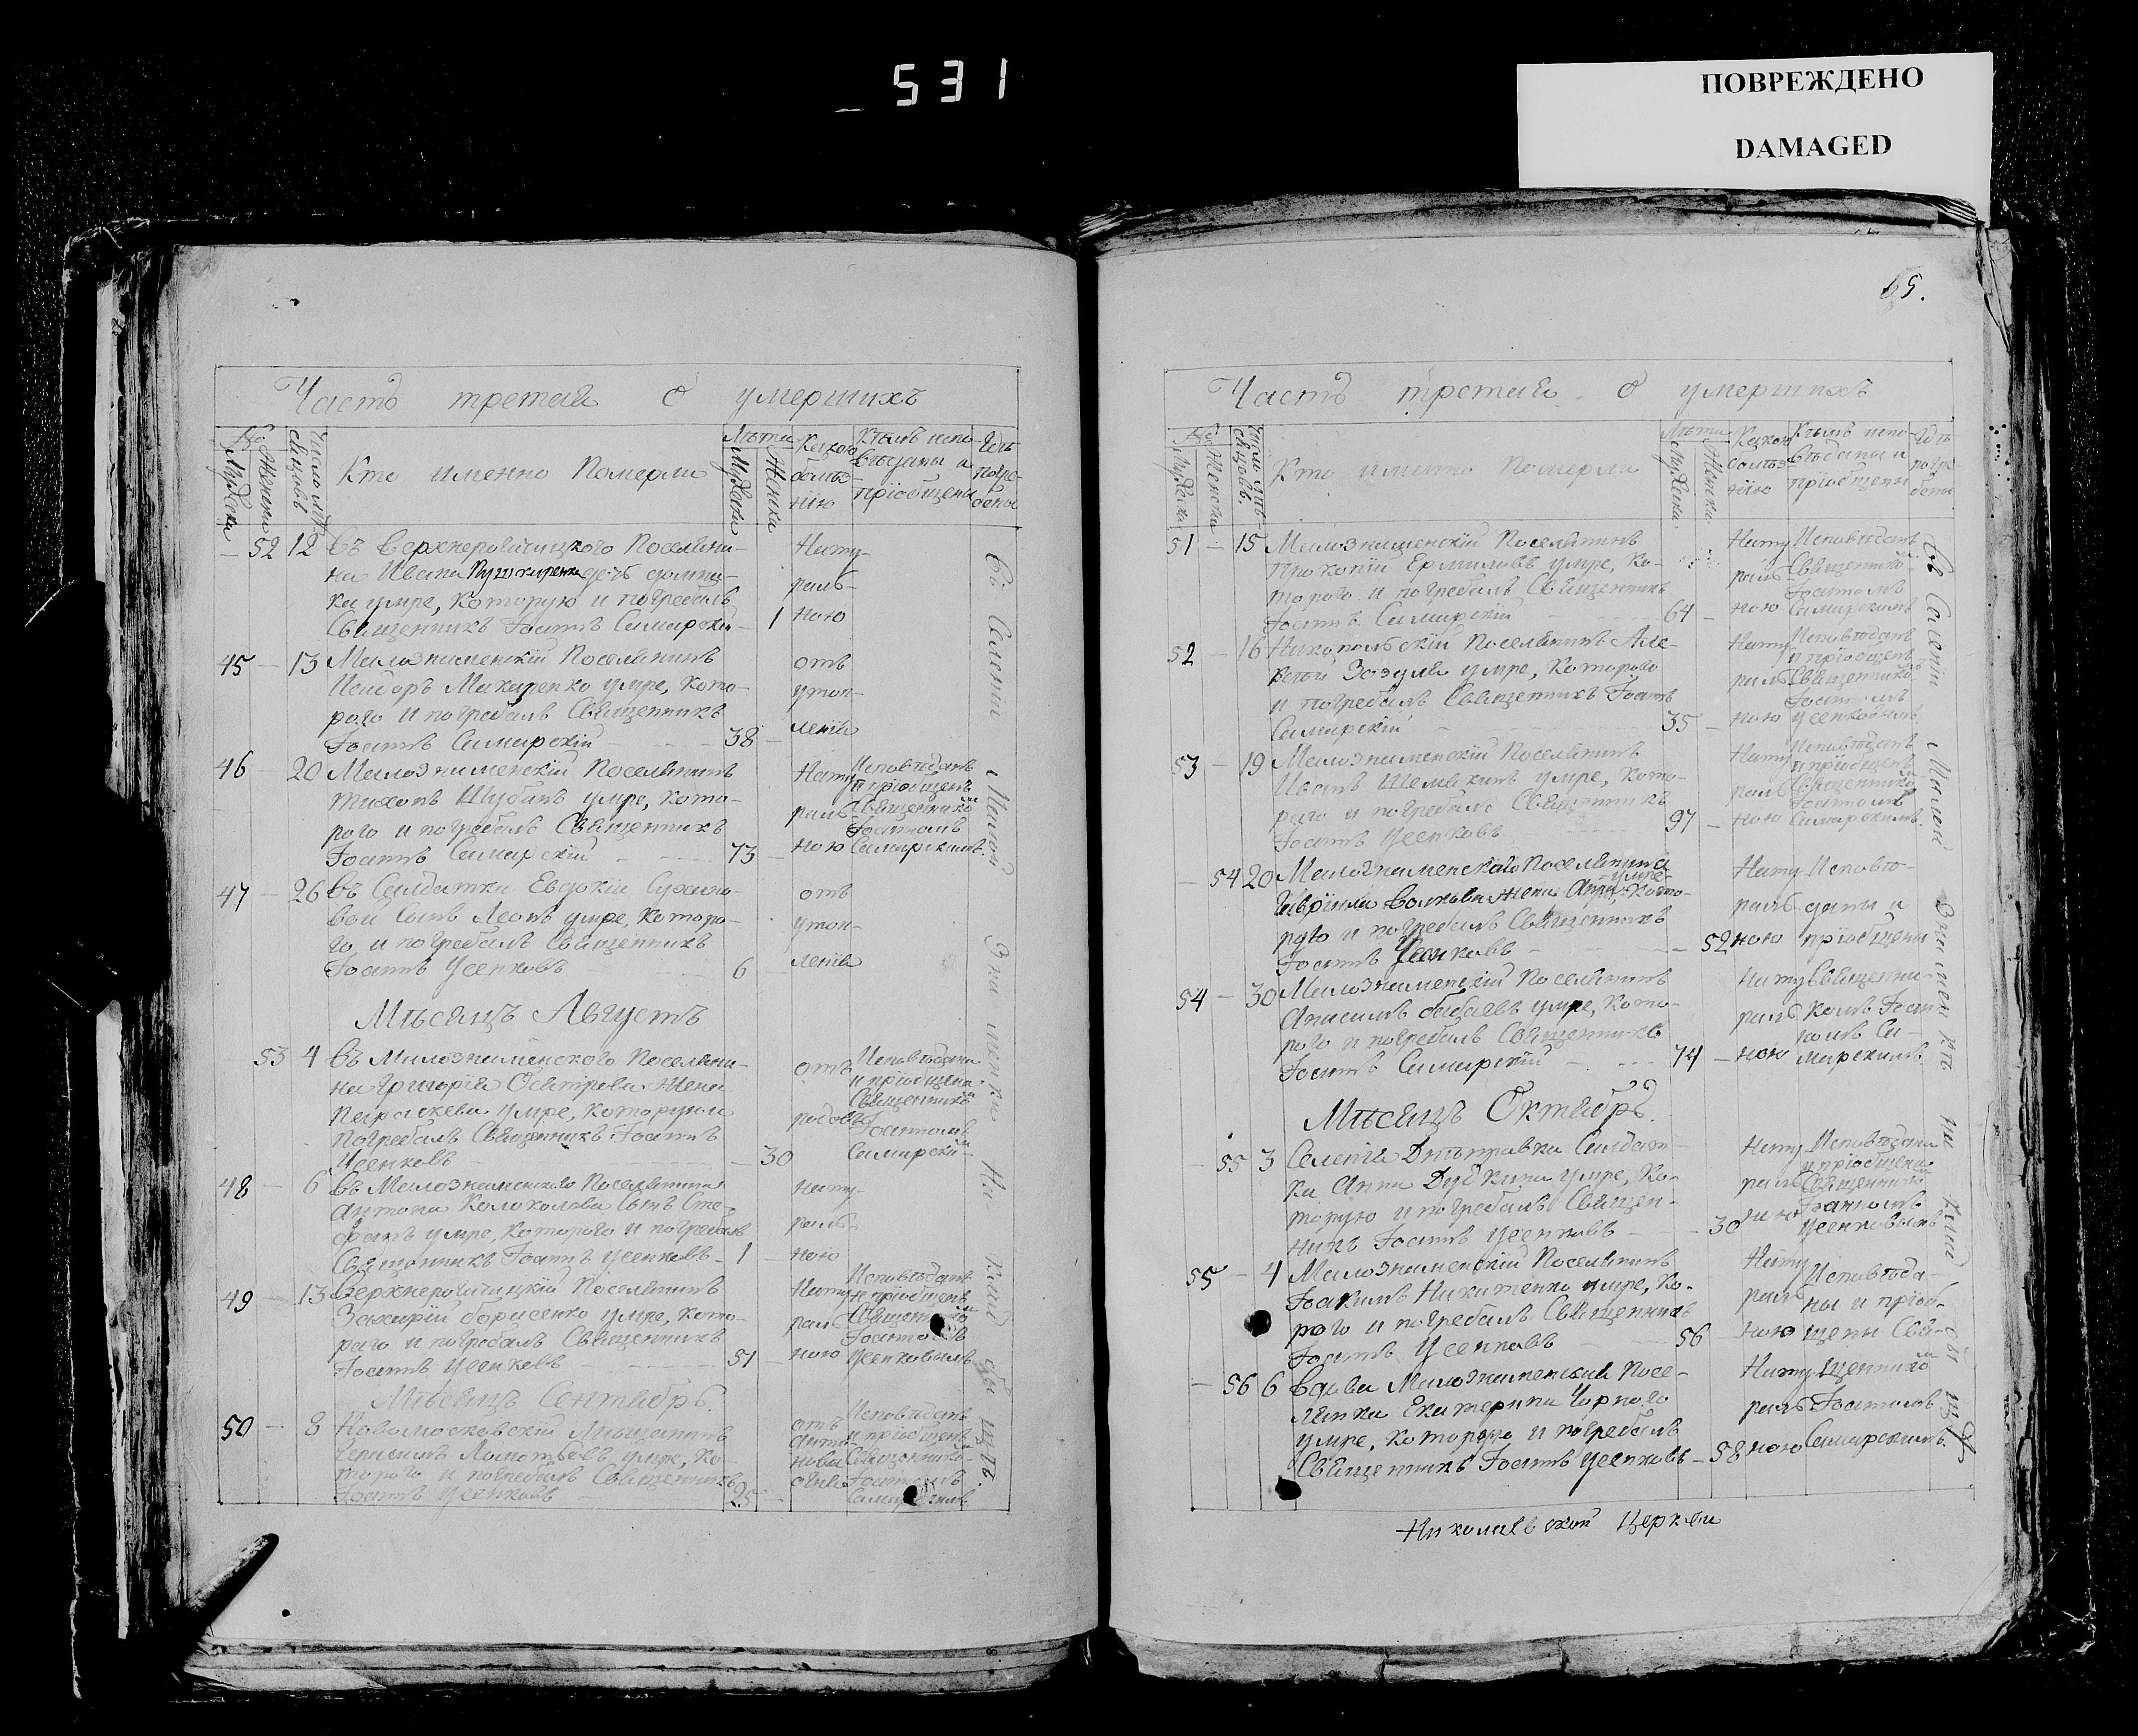 531
ПОВРЕЖДЕНО
DAMAGED
Часть третая о умершихъ
№
Мужеска
Женска
Число мѣсяцовъ
Кто именно Померли
Лѣта
Мужеска
Женска
Какою болѣзнію
Кѣмъ исповѣданы и пріобщены
Гдѣ погребены
52 12 въ верхнерогачицкого Поселяни-
на Ивана Пушкаренка дочь домни-
ка умре, которую и погребалъ
Священникъ Іоаннъ Самарскій 1
Нату-
раль-
ною
45 13 Малознаменскій Поселянинъ
Исидоръ Макаренко умре, кото-
раго и погребалъ Священникъ
Іоаннъ Самарскій 38
отъ
утоп-
ленія
46 20 Малознаменскій Поселянинъ
Тихонъ Шубинъ умре, кото-
раго и погребалъ Священникъ
Іоаннъ Самарскій 73
Нату
раль
ною
Исповѣданъ
и пріобщенъ
Священникомъ
Іоанномъ
Самарскимъ
47 26 въ Салдатки Евдокіи
вой Сынъ Леонъ умре, которо-
го и погребалъ Священникъ
Іоаннъ Усенковъ 6
отъ
утоп-
ленія
Мѣсяцъ Августъ
53 4 въ Малознаменского Поселяни-
на Григорія жена
Параскева умре, которую и
погребалъ Священникъ Іоаннъ
Усенковъ 30
отъ
родовъ
Исповѣдана
и пріобщена
Священникомъ
Іоанномъ
Самарским
48 6 въ Малознаменскаго Поселянина
Антона Колоколова Сынъ Сте-
фанъ умре, которого и погребалъ
Священникъ Іоаннъ Усенковъ 1
нату-
раль
ною
49 13 Верхнерогачицкій Поселянинъ
Захарій борисенко умре, кото-
раго и погребалъ Священникъ
Іоаннъ Усенковъ 51
Нату
раль
ною
Исповѣданъ
и пріобщенъ
Іоанномъ
Усенковымъ
Мѣсяцъ Сентябрь
50 8 Новомосковскій Мѣщанинъ
умре, ко-
тораго и погребалъ Священникъ
Іоаннъ Усенковъ 25
отъ
Анто
нова
огня
Исповѣданъ
и пріобщенъ
Священником
Іоанномъ
Въ Селеніи Малой Знаменки На кладбищѣ.
65.
Часть третая о умершихъ
№
Мужеска
Женска
Число мѣсяцовъ.
Кто именно Померли
Лѣта
Мужеска
Женска
Какою болѣзнію
Кѣмъ исповѣданы и пріобщены
Гдѣ погребены
51 15 Малознаменскій Поселянинъ
Прокопій Ермиловъ умре, ко-
тораго и погребалъ Священникъ
Іоаннъ Самарскій 64
Нату
раль
ною
Исповѣданъ
Священником
Іоанномъ
Самарскимъ
52 16 Никопольскій Поселянинъ Але-
ксѣй Зозуля умре, которого
и погребалъ Священникъ Іоаннъ
Самарскій 35
Нату
раль
ною
Исповѣданъ
и пріобщенъ
Священником
Іоанномъ
Усенковымъ
53 19 Малознаменскій Поселянинъ
Иванъ умре, кото-
раго и погребалъ Священникъ
Іоаннъ Усенковъ 97
Нату
раль
ною
Исповѣданъ
и пріобщенъ
Священником
Іоанномъ
Самарскимъ.
54 20 Малознаменскаго Поселянина
Гавріила Волкова жена Анна умре, кото-
рую и погребалъ Священникъ
Іоаннъ Усенковъ 52
Нату
раль
ною
Исповѣ-
даны и
пріобщены
54 30 Малознаменскій Поселянинъ
Анисимъ бабаевъ умре, кото-
рого и погребалъ Священникъ
Іоаннъ Самарскій 74
Нату
раль
ною
Священни-
комъ Іоан-
номъ Са-
марскимъ.
Мѣсяцъ Октябрь.
55 3 Селенія Днѣпровки Салдат-
ка Анна Дудкина умре, ко-
торую и погребалъ Священ-
никъ Іоаннъ Усенковъ 30
Нату
раль
ною
Исповѣдана
и пріобщена
Священником
Іоанномъ
Усенковымъ
55 4 Малознаменскій Поселянинъ
Іоакимъ Никитенко умре, ко-
рого и погребалъ Священникъ
Іоаннъ Усенковъ 56
Нату
раль
ною
Исповѣда-
ны и пріоб-
щены Свя-
56 6 вдова Малознаменская Посе-
лянка Екатерина Чорного
умре, которую и погребалъ
Священникъ Іоаннъ Усенковъ 58
Нату
раль
ною
щенником
Іоанномъ
Самарскимъ.
въ Селеніи Малой Знаменкѣ на кладбищѣ
Николаевской Церкви